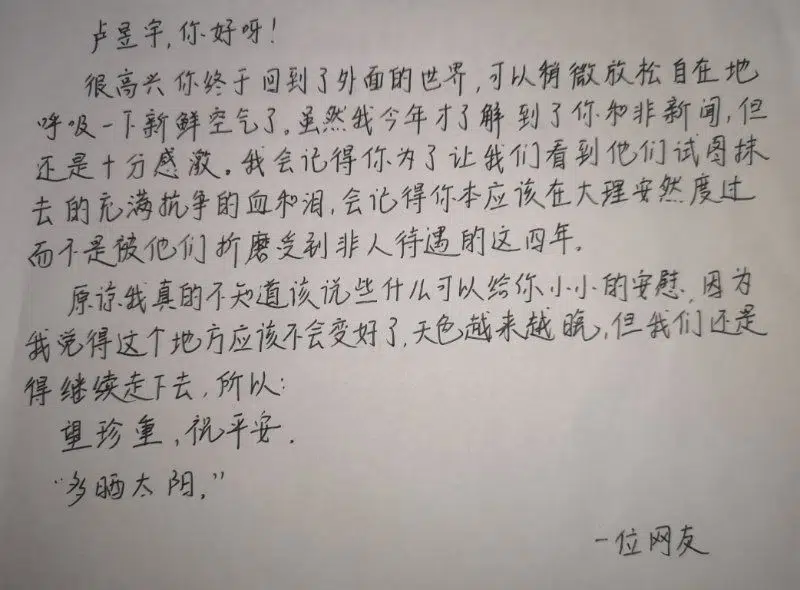 卢昱宇,你好呀!
很高兴你终于回到了外面的世界,可以稍微放松自在地
呼吸一下新鲜空气了。虽然我今年才了解到了你和非新闻,但
还是十分感激。我会记得你为了让我们看到他们试图抹
去的充满抗争的血和泪,会记得你本应该在大理安然度过
而不是被他们折磨受到非人待遇的这四年。
原谅我真的不知道该说些什么可以给你小小的安慰,因为
我觉得这个地方应该不会变好了,天色越来越晚,但我们还是
得继续走下去,所以:
望珍重,祝平安.
“多晒太阳。”
一位网友